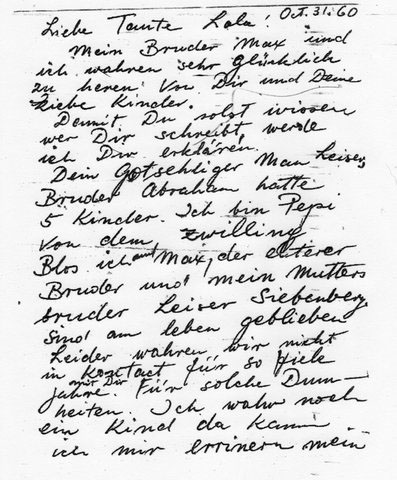 Oct. 31. 60
Liebe Tante Lola!
Mein Bruder Max und
ich wahren sehr glücklich
zu heren Von Dir und Deine
Liebe Kinder.
Damit Du solst wissen
wer Dir schreibt, werde
ich Dir erklären.
Dein Gotseliger Man Leiser,
Bruder Abraham hatte
5 Kinder. Ich bin Pepi
von dem zwilling
Blos ich und Max, der elterer
Bruder und mein Mutters
bruder Leiser Siebenberg,
sind am leben geblieben
Leider wahren wir nicht
in Kontact für so fiele
jahre mir Dir. Für solche Dum-
heiten. Ich wahr noch
ein Kind da kann
ich mir errinern mein